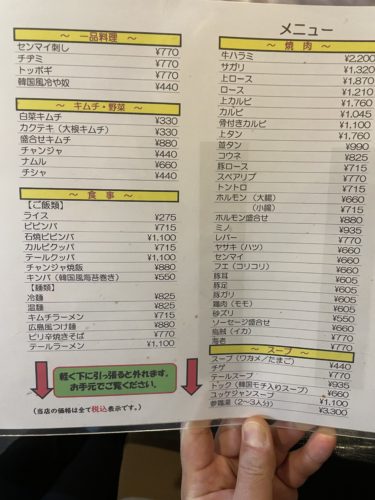 ～ 一品料理 ～
センマイ刺し ¥770
チヂミ ¥770
トッポギ ¥770
韓国風冷や奴 ¥440
～ キムチ・野菜 ～
白菜キムチ ¥330
カクテキ（大根キムチ） ¥330
盛合せキムチ ¥880
チャンジャ ¥440
ナムル ¥660
チシャ ¥440
～ 食 事 ～
【ご飯類】
ライス ¥275
ビビンバ ¥715
石焼ビビンバ ¥1,100
カルビクッパ ¥715
テールクッパ ¥1,100
チャンジャ焼飯 ¥880
キンパ（韓国風海苔巻き） ¥550
【麺類】
冷麺 ¥825
温麺 ¥825
キムチラーメン ¥715
広島風つけ麺 ¥880
ピリ辛焼きそば ¥770
テールラーメン ¥1,100
軽く下に引っ張ると外れます。
お手元でご覧ください。
（当店の価格は全て税込表示です。）
メニュー
～ 焼 肉 ～
牛ハラミ ¥2,200
サガリ ¥1,320
上ロース ¥1,870
ロース ¥1,210
上カルビ ¥1,760
カルビ ¥1,045
骨付きカルビ ¥1,100
上タン ¥1,760
並タン ¥990
コウネ ¥825
豚ロース ¥715
スペアリブ ¥770
トントロ ¥770
ホルモン（大腸） ¥660
（小腸） ¥715
ホルモン盛合せ ¥880
ミノ ¥935
レバー ¥770
ヤサキ（ハツ） ¥660
センマイ ¥660
フエ（コリコリ） ¥660
豚耳 ¥605
豚足 ¥605
豚ガリ ¥605
鶏肉（モモ） ¥605
砂ズリ ¥550
ソーセージ盛合せ ¥660
烏賊（イカ） ¥660
海老 ¥770
～ スープ ～
スープ（ワカメ／たまご） ¥440
チゲ ¥770
テールスープ ¥935
トック（韓国モチ入りスープ） ¥660
ユッケジャンスープ ¥1,100
参鶏湯（2～3人分） ¥3,300